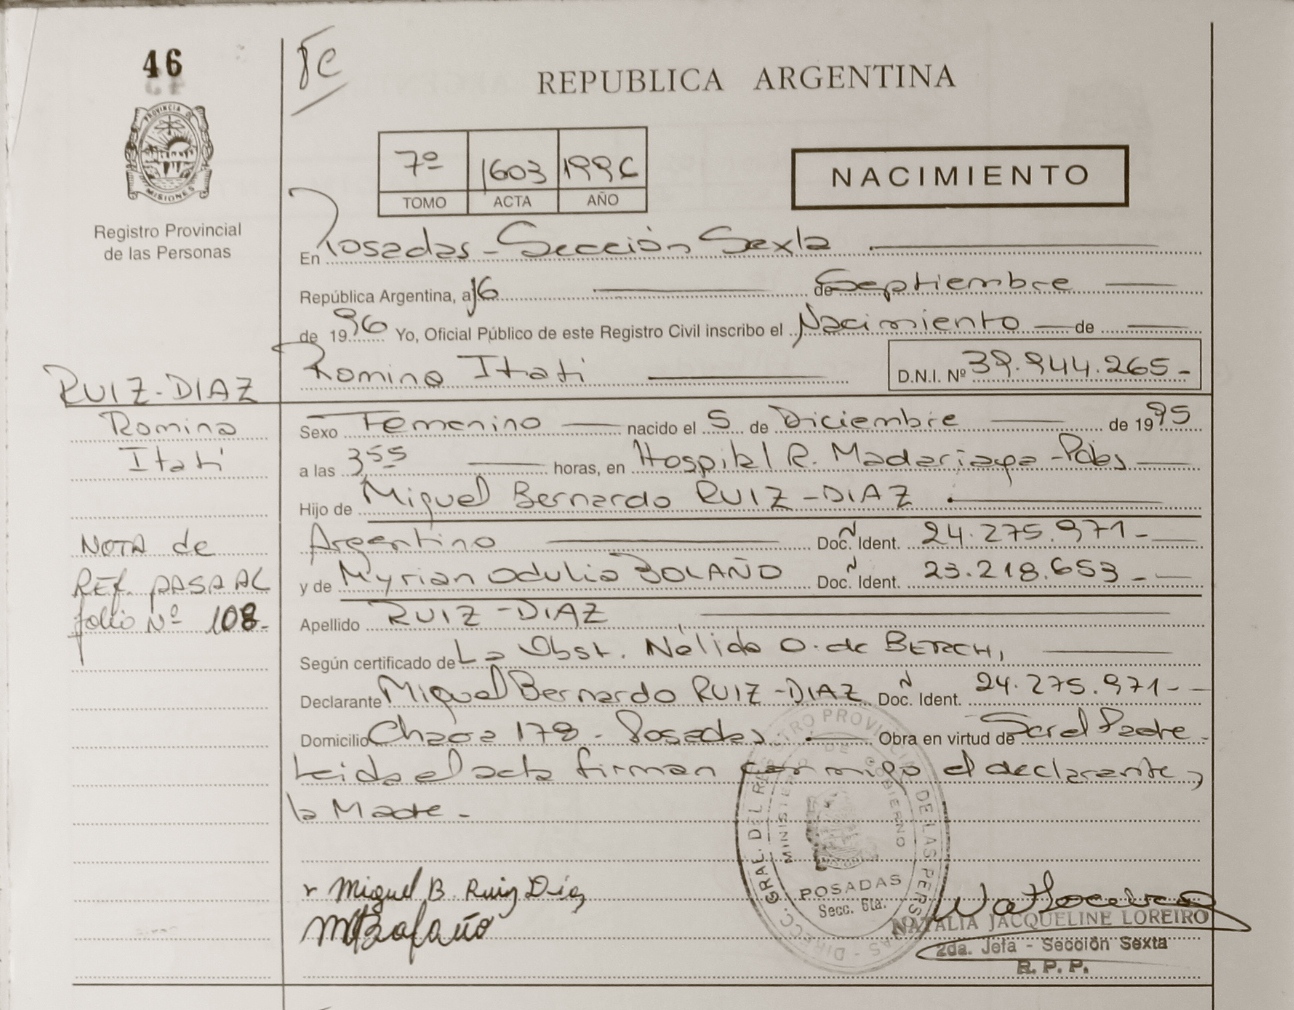 46
REPUBLICA ARGENTINA
PROVINCIA DE MISIONES
Registro Provincial
de las Personas
7º 1603 1996
TOMO ACTA AÑO
NACIMIENTO
En Posadas - Sección Sexta
República Argentina, a 16 de Septiembre
de 1996 Yo, Oficial Público de este Registro Civil inscribo el Nacimiento de
Romina Itati
D.N.I. Nº 39.944.265-
RUIZ-DIAZ
Romina
Itati
NOTA de
REF. PASA AL
folio Nº 108-
Sexo Femenino nacido el 5 de Diciembre de 1995
a las 3,55 horas, en Hospital R. Madariaga - Pdas
Hijo de Miguel Bernardo RUIZ-DIAZ
Argentino Doc. N Ident. 24.275.971-
y de Myrian Odulia BOLAÑO Doc. N Ident. 23.218.653-
Apellido RUIZ-DIAZ
Según certificado de La Obst. Nélida O. de BERCH,
Declarante Miguel Bernardo RUIZ-DIAZ Doc. N Ident. 24.275.971-
Domicilio Chaca 178 - Posadas Obra en virtud de Ser el Padre -
Leida el acta firman conmigo el declarante y
la Madre -
Miguel B. Ruiz Díaz
MBolaño
DIRECC. GRAL. DEL REGISTRO PROVINCIAL DE LAS PERSONAS
MINISTERIO DE GOBIERNO
POSADAS
Secc. 6ta.
NATALIA JACQUELINE LOREIRO
2da. Jefa - Sección Sexta
R. P. P.